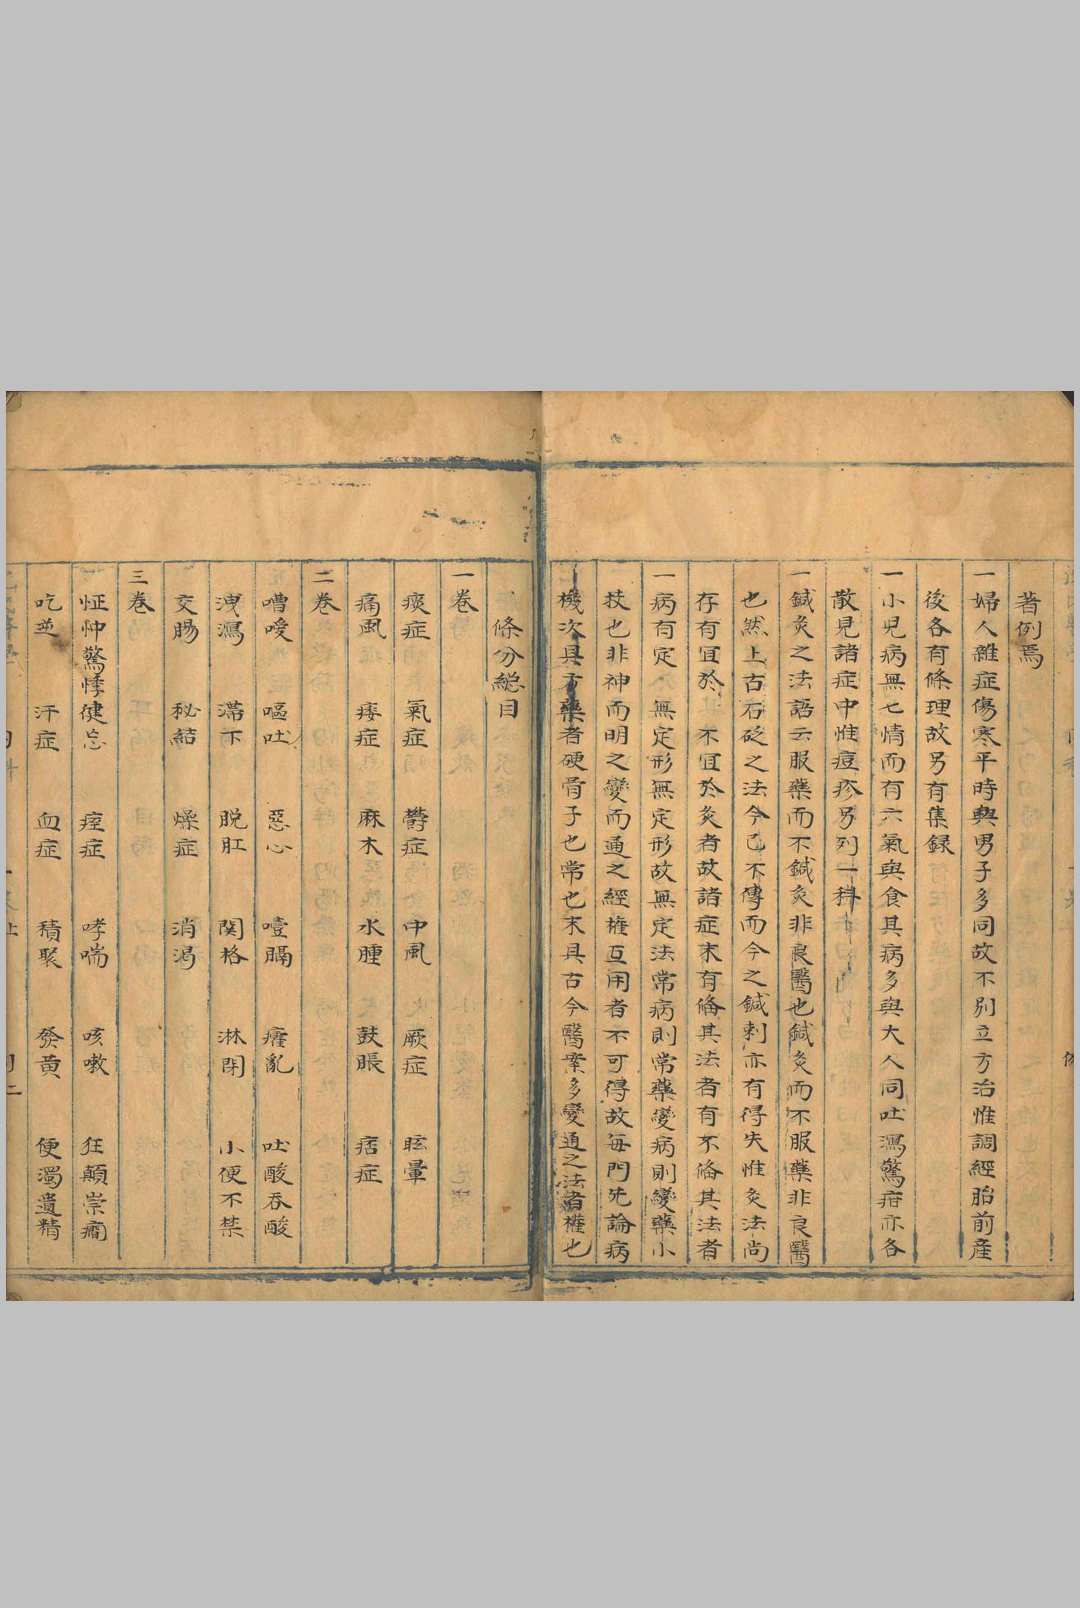 著例焉
一婦人雜症傷寒平時與男子多同故不別立方治惟調經胎前産
後各有條理故另有集録
一小児病無七情而有六氣與食其病多與大人同吐瀉驚疳亦各
散見諸症中惟痘疹另列一科
一鍼灸之法語云服藥而不鍼灸非良醫也鍼灸而不服藥非良醫
也然上古石砭之法今已不傳而今之鍼刺亦有得失惟灸法尚
存有宜於 不宜於灸者故諸症末有俻其法者有不俻其法者
一病有定 無定形無定形故無定法常病則常藥變病則變藥小
技也非神而明之變而通之經權互用者不可得故每門先論病
機次具方藥者硬骨子也常也末具古今醫案多變通之法者權也
條分總目
一卷
痰症 氣症 欝症 中風 厥症 眩暈
痛風 痿症 麻木 水腫 鼓脹 痞症
二卷
嘈嗳 嘔吐 惡心 噎膈 癨亂 吐酸吞酸
洩瀉 滯下 脱肛 関格 淋閉 小便不禁
交腸 秘結 燥症 消渴
三卷
怔忡驚悸健忘 痓症 哮喘 咳嗽 狂顛祟癇
吃逆 汗症 血症 積聚 發黄 便濁遺精